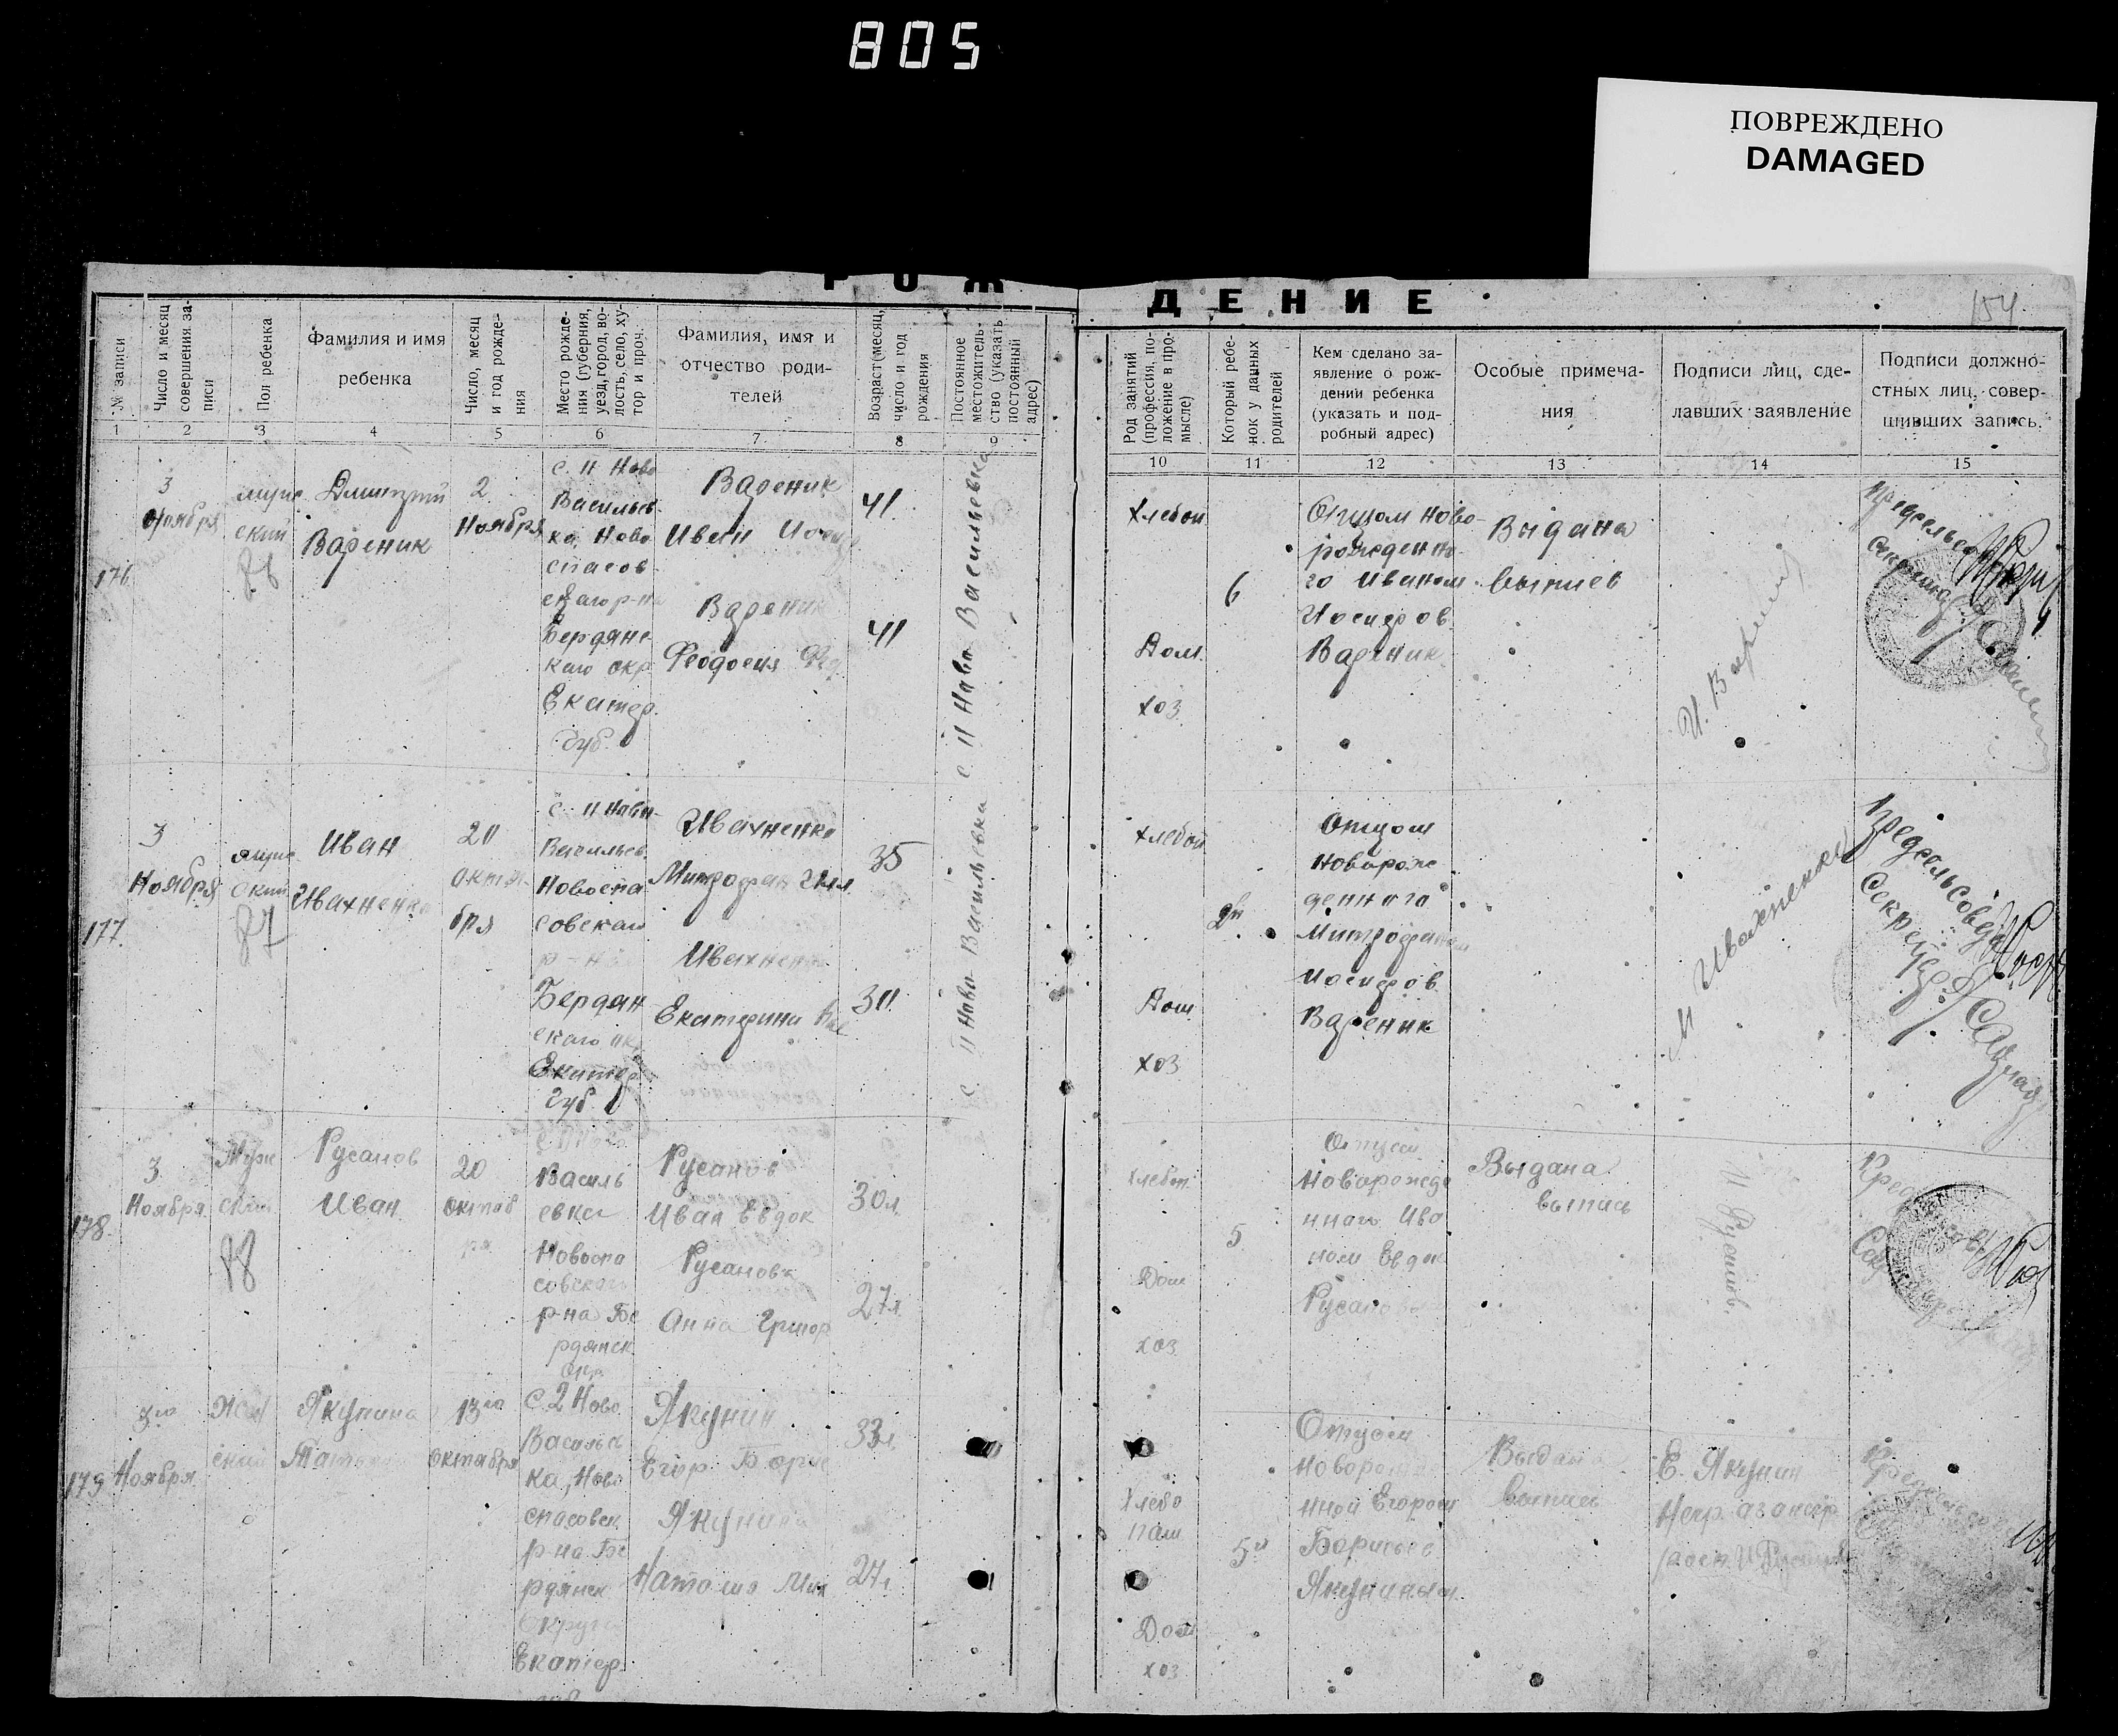 805
ПОВРЕЖДЕНО
DAMAGED
РОЖДЕНИЕ
154
№ записи
Число и месяц
совершения за-
писи
Пол ребенка
Фамилия и имя
ребенка
Число, месяц
и год рожде-
ния
Место рожде-
ния (губерния,
уезд, город, во-
лость, село, ху-
тор и проч.
Фамилия, имя и
отчество роди-
телей
Возраст (месяц,
число и год
рождения
Постоянное
местожитель-
ство (указать
постоянный
адрес)
Род занятий
(профессия, по-
ложение в про-
мысле)
Который ребе-
нок у данных
родителей
Кем сделано за-
явление о рож-
дении ребенка
(указать и под-
робный адрес)
Особые примеча-
ния
Подписи лиц, сде-
лавших заявление
Подписи должно-
стных лиц, совер-
шивших запись.
1 2 3 4 5 6 7 8 9 10 11 12 13 14 15
176
3
Ноября
мужс
ский
86
Дмитрий
Вареник
2
Ноября
с. II Ново
Васильев-
ка, Ново
спасов-
Бердянс-
каго окр
Екатер.
губ.
Вареник
Иван
Вареник
Феодосия
41
41
с. II Ново Васильевка
Хлебоп
Дом.
хоз
6
Отцом ново-
рожденно-
го Иваном
Иосифов.
Вареник
Выдана
выпись
И. Вареник
Предсельсов
Секретарь
177
3
Ноября
ский
87
Иван
Ивахненко
20
октя-
бря
с. II Ново-
Васильев.
Новоспа
совскаго
р-на
Бердян
скаго
Екатер
губ.
Ивахненко
Митрофан
Ивахненко
Екатерина
35
30
с. II Ново Васильевка
Хлебоп
Дом
хоз
Отцом
Новорож
деннаго
Митрофаном
Иосифов
Вареник
М Ивахненко
Предсельсовета
Секретарь
178
3
Ноября
Муж
ский
88
Русанов
Иван
20
октяб
ря
Василь
евка
Новоспа
совскаго
р-на Бе
рдянск
окр.
Русанов
Иван Евдок
Русанова
Анна Григор
30л.
27л.
Хлебоп.
Дом
хоз
5
Отцом
Новорожде
ннаго Ива
ном Евдок
Русановым
Выдана
выпись
И Русанов.
179
3го
Ноября
Жен
ский
Якунина
Татьяна
13го
октября
С. 2 Ново
Василье
ка, Ново
спасовск
р-на Бе
рдянск
Округа
Екатер
Якунин
Егор Борис
Якунина
33л.
27л
Хлебо
паш
Дом
хоз
5й
Отцом
новорожде
нной Егором
Борисов
Якуниным
Выдана
выпись
Е. Якунин
Предсельсовета